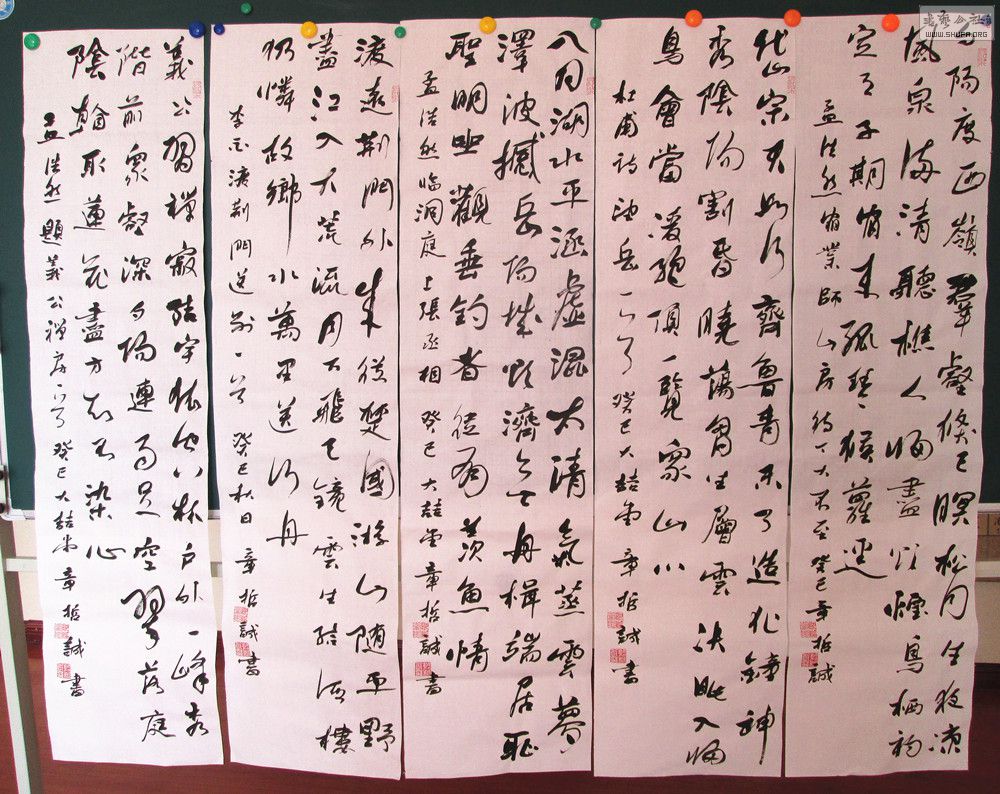 书艺公社
WWW.SHUFA.ORG
夕陽度西嶺群壑倏已暝松月生夜凉
風泉滿清聽樵人歸盡欲煙鳥栖初
定之子期宿來孤琴候蘿逕
孟浩然宿業師山房待丁大不至癸巳章哲誠
岱宗夫如何齊魯青未了造化鍾神
秀陰陽割昏曉蕩胸生層雲决眥入歸
鳥會當凌絕頂一覽眾山小
杜甫詩望岳一首癸巳大喆堂章哲誠書
八月湖水平涵虛混太清氣蒸雲夢
澤波撼岳陽城欲濟無舟楫端居恥
聖明坐觀垂釣者徒有羨魚情
孟浩然臨洞庭上張丞相癸巳大喆堂章哲誠書
渡遠荊門外來從楚國游山随平野
盡江入大荒流月下飛天鏡雲生結海樓
仍憐故鄉水萬里送行舟
李白渡荊門送別一首癸巳秋日章哲誠書
義公習禪寂結宇依空林户外一峰秀
階前眾壑深夕陽連雨足空翠落庭
陰取蓮花盡方知不染心
孟浩然題義公禪房一首癸巳大喆堂章哲誠書